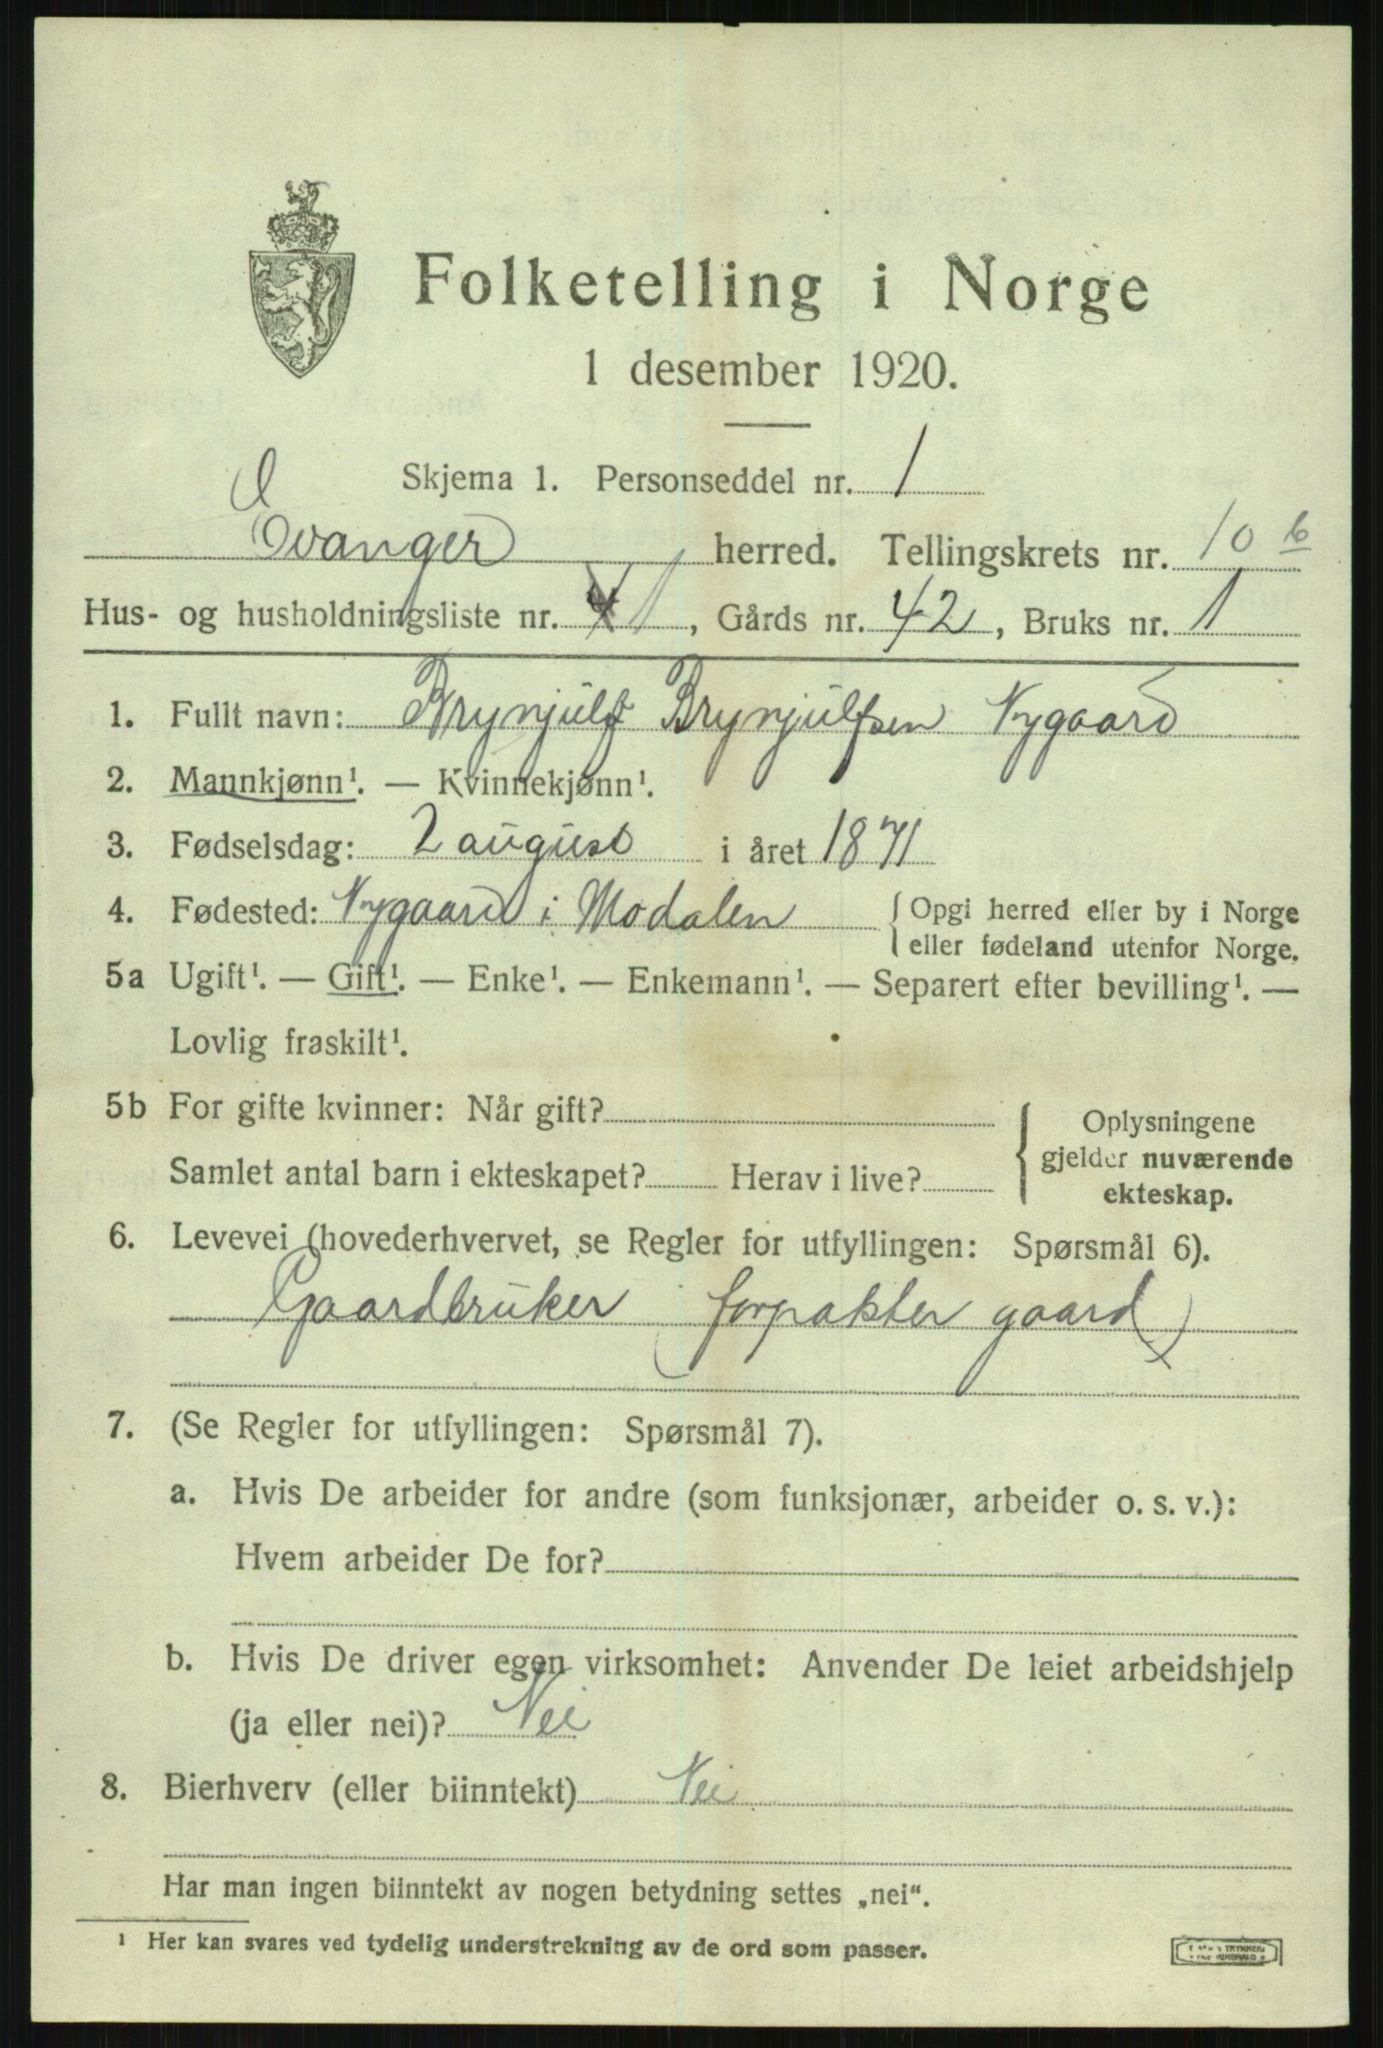 Folketelling i Norge
1 desember 1920.
Skjema 1. Personseddel nr. 1
Evanger herred. Tellingskrets nr. 10 b
Hus- og husholdningsliste nr. 1, Gårds nr. 42, Bruks nr. 1
1. Fullt navn: Brynjulf Brynjulfsen Nygaard
2. Mannkjønn¹. — Kvinnekjønn¹.
3. Fødselsdag: 2 august i året 1871
4. Fødested: Nygaard i Modalen { Opgi herred eller by i Norge
eller fødeland utenfor Norge.
5a Ugift¹. — Gift¹. — Enke¹. — Enkemann¹. — Separert efter bevilling¹. —
Lovlig fraskilt¹.
5b For gifte kvinner: Når gift? { Oplysningene
gjelder nuværende
Samlet antal barn i ekteskapet? Herav i live?
ekteskap.
6. Levevei (hovederhvervet, se Regler for utfyllingen: Spørsmål 6).
Gaardbruker (forpakter gaard)
7. (Se Regler for utfyllingen: Spørsmål 7).
a. Hvis De arbeider for andre (som funksjonær, arbeider o. s. v.):
Hvem arbeider De for?
b. Hvis De driver egen virksomhet: Anvender De leiet arbeidshjelp
(ja eller nei)? Nei
8. Bierhverv (eller biinntekt) Nei
Har man ingen biinntekt av nogen betydning settes „nei“.
¹ Her kan svares ved tydelig understrekning av de ord som passer.